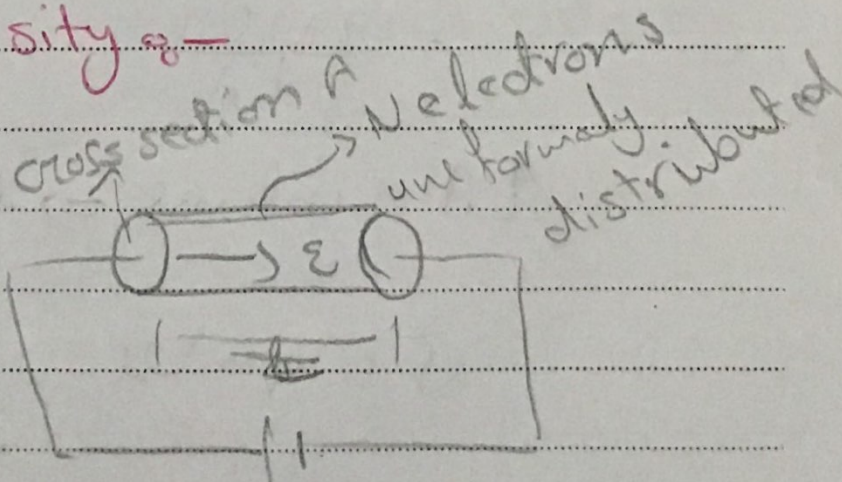 sity :-
cross section A
N electrons
uniformaly
distributed
ε
L